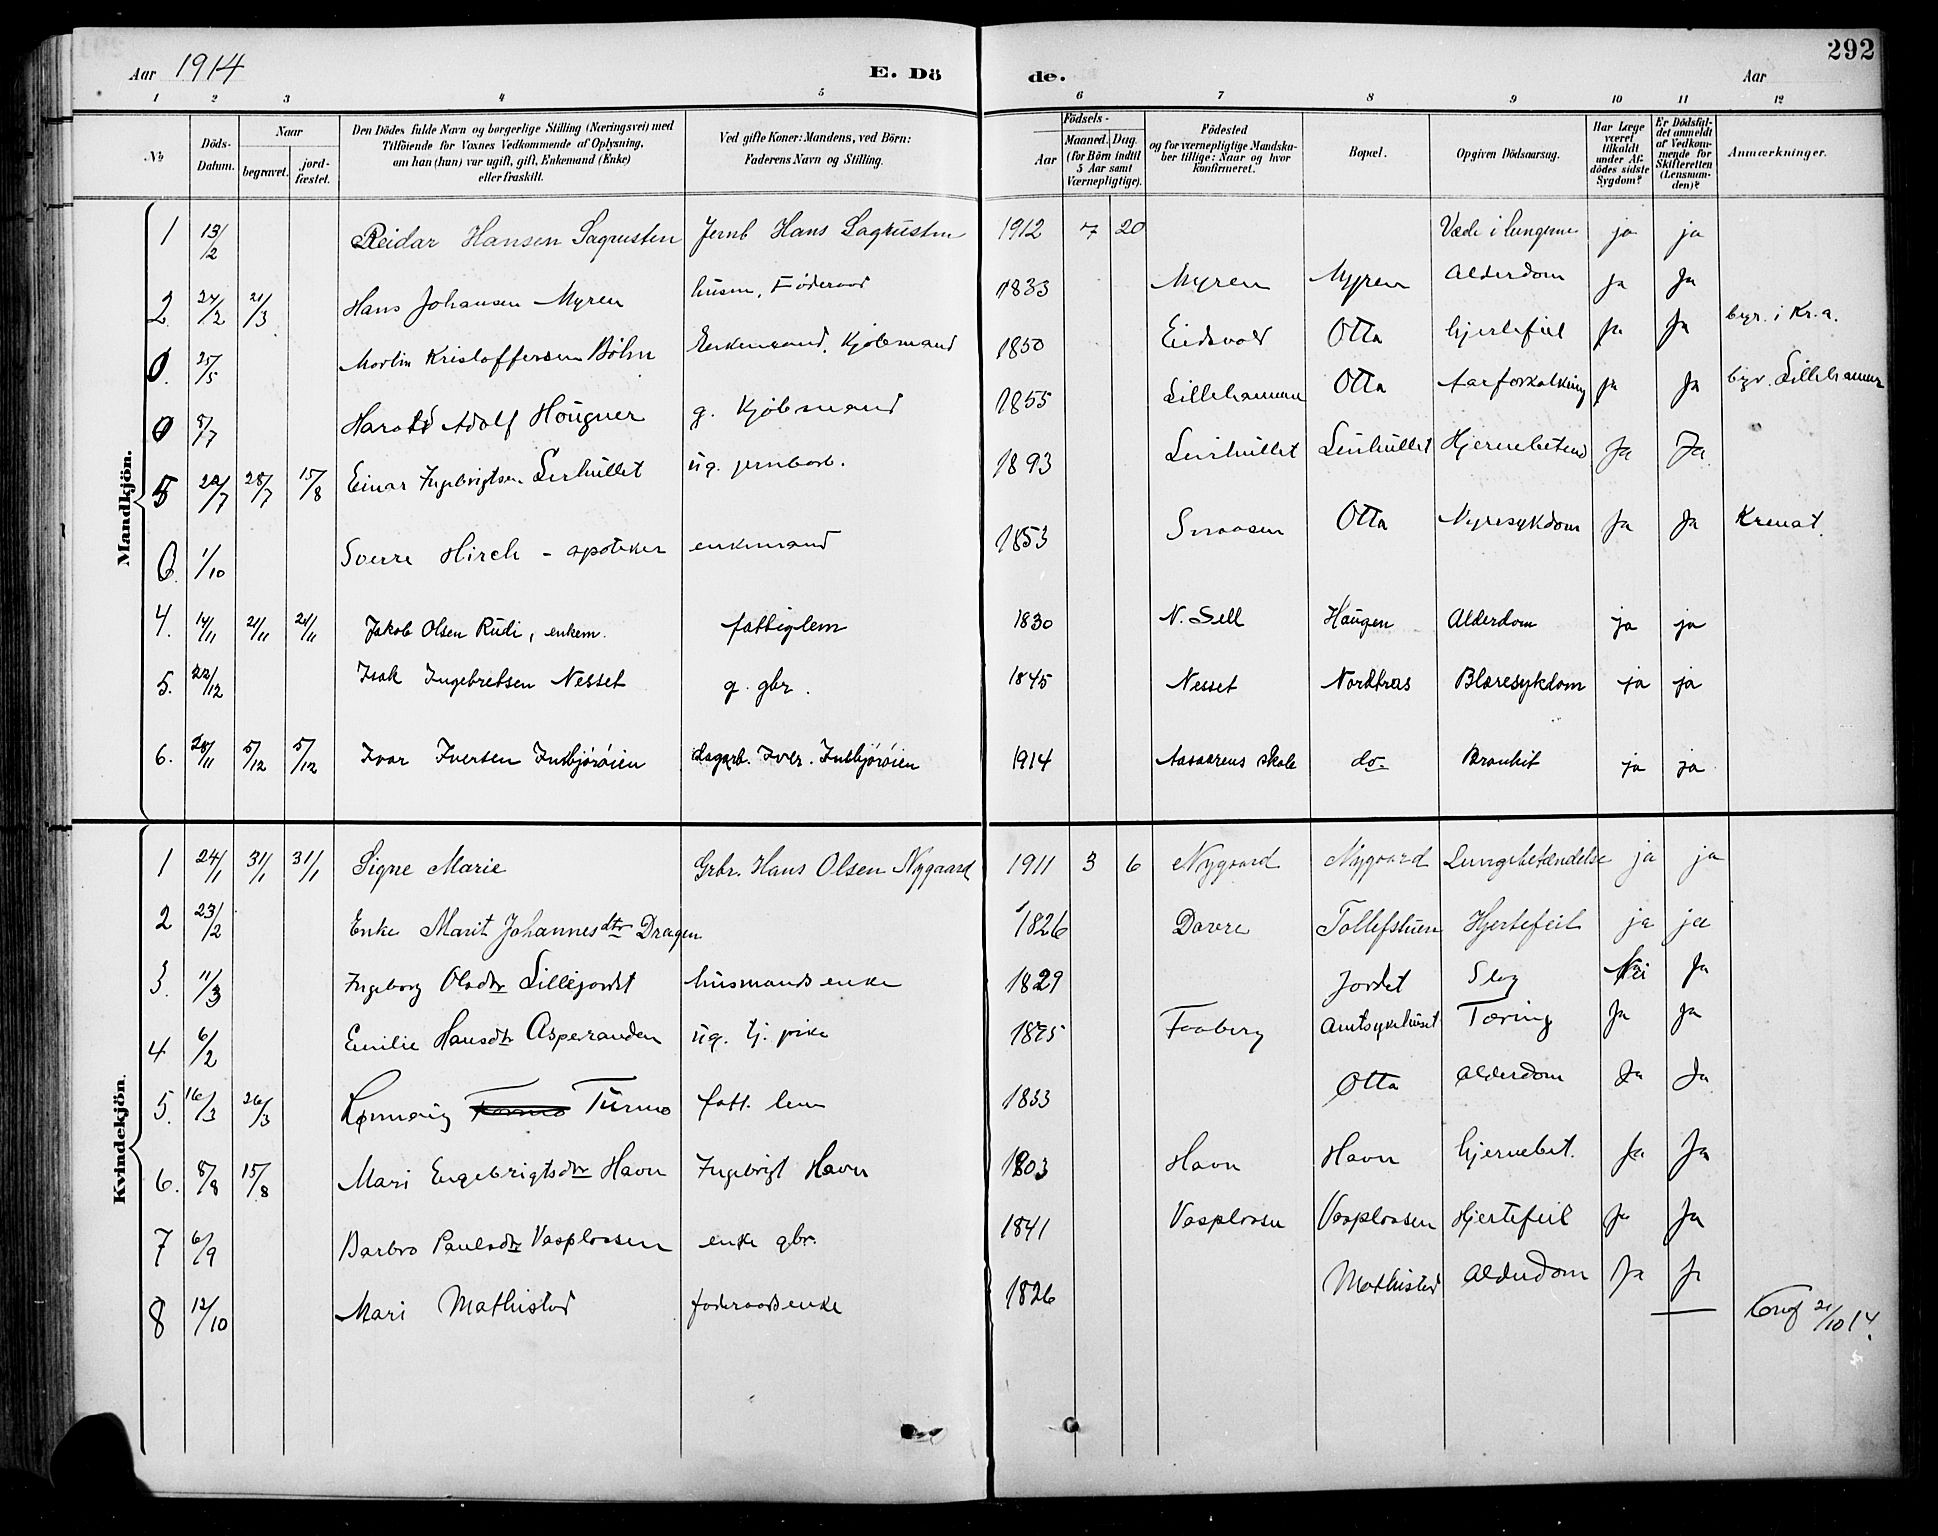 Aar 1914 E. Dö de. Aar 292
1 2 3 4 5 6 7 8 9 10 11 12
No. Döds-Datum. Naar begravet. jordfæstet. Den Dödes fulde Navn og borgerlige Stilling (Næringsvei) med Tilföiende for Voxnes Vedkommende af Oplysning, om han (hun) var ugift, gift, Enkemand (Enke) eller fraskilt. Ved gifte Koner: Mandens, ved Börn: Faderens Navn og Stilling. Födsels- Aar Maaned. Dag. (for Börn indtil 5 Aar samt Værnepligtige). Födested og for værnepligtige Mandskaber tillige: Naar og hvor konfirmeret. Bopæl. Opgiven Dödsaarsag. Har Læge været tilkaldt under Afdödes sidste Sygdom? Er Dödsfaldet anmeldt af Vedkommende for Skifteretten (Lensmanden)? Anmærkninger.
Mandkjön.
1 13/2 Reidar Hansen Sagrusten Jernb Hans Sagrusten 1912 7 20 Væde i lungerne ja ja
2. 24/2 21/3 Hans Johansen Myren husm, Føderaad 1833 Myren Myren Alderdom ja Ja
0. 25/5 Martin Kristoffersen Bøhn Enkemand. Kjøbmand 1850 Eidsvold Otta hjertefeil ja Ja byr. i Kr.a.
0 8/7 Harald Adolf Hougner g. Kjøbmand 1855 Lillehammer Otta Aarforkalkning ja Ja byr. Lillehammer
5 22/7 28/7 15/8 Einar Ingebrigtsen Lerhullet ug. jernbarb. 1893 Leirhullet Leirhullet Hjernebetend Ja Ja.
0. 1/10 Sverre Hirch - apoteker enkemand 1853 Snaasen Otta Nyresykdom Ja Ja Kremat.
4. 14/11 21/11 21/11 Jakob Olsen Rudi, enkem. fattiglem 1830 N. Sell Haugen Alderdom ja ja
5. 22/12 Isak Ingebretsen Nesset g. gbr. 1845 Nesset Nordtras Blæresykdom ja ja
6. 28/11 5/12 5/12 Ivar Iversen dagarb. Iver. 1914 Aasaarens skole do. Bronkit ja ja
Kvindekjön.
1 24/1 31/1 31/1 Signe Marie Grbr. Hans Olsen Nygaard 1911 3 6 Nygaard Nygaard Lungebetændelse ja ja
2 23/2 Enke Marit Johannesdtr Dragen 1826 Dovre Tollefstuen Hjertefeil ja ja
3. 11/3 Ingeborg Olsdtr Lillejordet husmands enke 1829 Jordet Slag Nei Ja
4 6/2 Emilie Hansdtr Asperanden ug. tj. pike 1875 Faaberg Amtsykehuset Tæring Ja Ja
5. 16/3 26/3 Rønnaug Formo Turmo fatt. lem 1833 Otta Alderdom Ja Ja
6. 8/8 15/8 Mari Engebrigtsdtr Havn Ingebrigt Havn 1803 Havn Havn hjernebet. Ja Ja
7 6/9 Barbro Paulsdtr Vasplassen enke gbr. 1841 Vasplassen Vasplassen Hjertefeil Ja Ja
8 12/10 Mari Mathistad føderaadsenke 1826 Mathistad Alderdom Ja Ja
Konf 21/10 14.